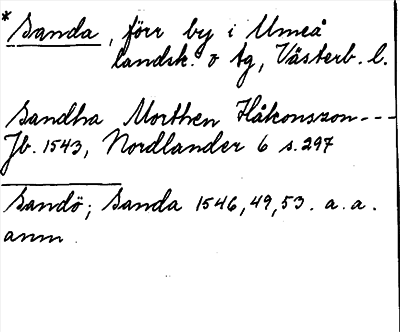 * Sanda, förr by i Umeå
landsk. o tg, Västerb. l.
Sandha Morthen Håkonszon ---
Jb. 1543, Nordlander 6 s. 297
Sandö; Sanda 1546, 49, 53. a. a.
anm.